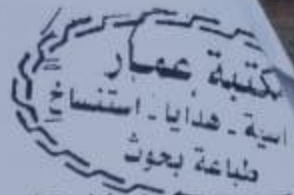 مكتبة عمار
اسية - هدايا - استنساخ
طباعة بحوث